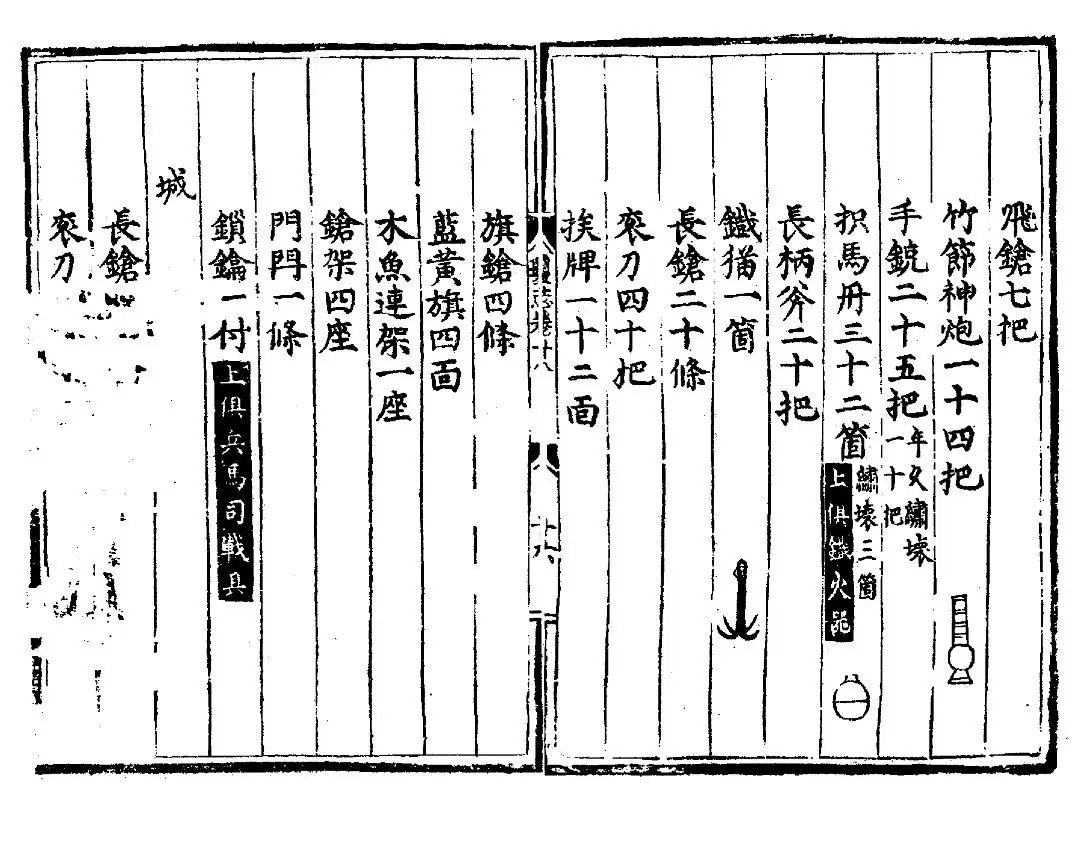 飛鎗七把
竹節神炮一十四把
手銃二十五把年久鏽壞一十把
扻馬冊三十二箇鏽壞三箇上俱鐵火器
長柄斧二十把
鐵猫一箇
長鎗二十條
衮刀四十把
挨牌一十二面
志卷十八
十六
旗鎗四條
藍黃旗四面
木魚連架一座
鎗架四座
門閂一條
鎖鑰一付上俱兵馬司戰具
城
長鎗
衮刀